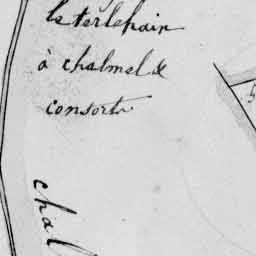 le terlepain
à chalmel &
consorts
chal